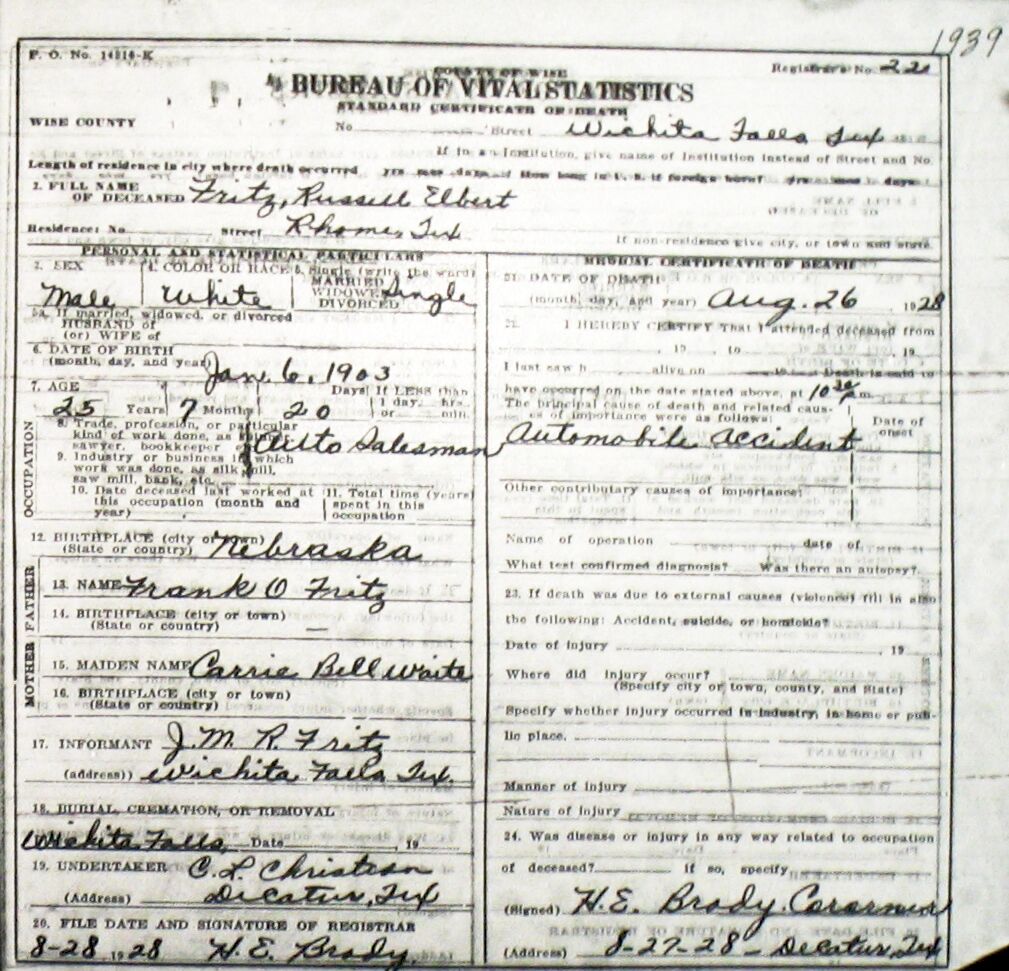 1939
F. O. No. 14816-K
Registrar's No. 221
COUNTY OF WISE
BUREAU OF VITAL STATISTICS
STANDARD CERTIFICATE OF DEATH
WISE COUNTY
No. Street Wichita Falls Tex
If in an Institution, give name of Institution instead of Street and No.
Length of residence in city where death occurred yrs mos days How long in U. S. if foreign born? yrs mos days
2. FULL NAME
OF DECEASED Fritz, Russell Elbert
Residence: No. Street Rhome, Tex
If non-residence give city, or town and state.
PERSONAL AND STATISTICAL PARTICULARS
3. SEX 4. COLOR OR RACE 5. Single (write the word)
MARRIED
WIDOWED
DIVORCED
Male White Single
5a. If married, widowed, or divorced
HUSBAND of
(or) WIFE of
6. DATE OF BIRTH
(month, day, and year) Jan 6, 1903
7. AGE Days If LESS than
1 day, hrs.
25 Years 7 Months 20 or min.
OCCUPATION
8. Trade, profession, or particular
kind of work done, as
sawyer, bookkeeper Auto Salesman
9. Industry or business in which
work was done, as silk mill,
saw mill, bank, etc.
10. Date deceased last worked at 11. Total time (years)
this occupation (month and spent in this
year) occupation
12. BIRTHPLACE (city or town) Nebraska
(State or country)
FATHER
13. NAME Frank O Fritz
14. BIRTHPLACE (city or town)
(State or country) —
MOTHER
15. MAIDEN NAME Carrie Bell Waite
16. BIRTHPLACE (city or town)
(State or country)
17. INFORMANT J. M. R. Fritz
(address)) Wichita Falls Tex.
18. BURIAL, CREMATION, OR REMOVAL
Wichita Falls Date 19
19. UNDERTAKER C. L. Christian
(Address) Decatur, Tex
20. FILE DATE AND SIGNATURE OF REGISTRAR
8-28 1928 H. E. Brady
MEDICAL CERTIFICATE OF DEATH
21. DATE OF DEATH
(month, day, and year) Aug. 26 1928
22. I HEREBY CERTIFY THAT I attended deceased from
, 19 , to , 19
I last saw h alive on 19 Death is said to
have occurred on the date stated above, at 10 30 P m.
The principal cause of death and related caus-
es of importance were as follows: Date of
onset
Automobile accident
Other contributary causes of importance:
Name of operation date of
What test confirmed diagnosis? Was there an autopsy?
23. If death was due to external causes (violence) fill in also
the following: Accident, suicide, or homicide?
Date of injury , 19
Where did injury occur?
(Specify city or town, county, and State)
Specify whether injury occurred in industry, in home or pub-
lic place.
Manner of injury
Nature of injury
24. Was disease or injury in any way related to occupation
of deceased? if so, specify
(Signed) H. E. Brady Cororner
(Address) 8-27-28 - Decatur, Tex